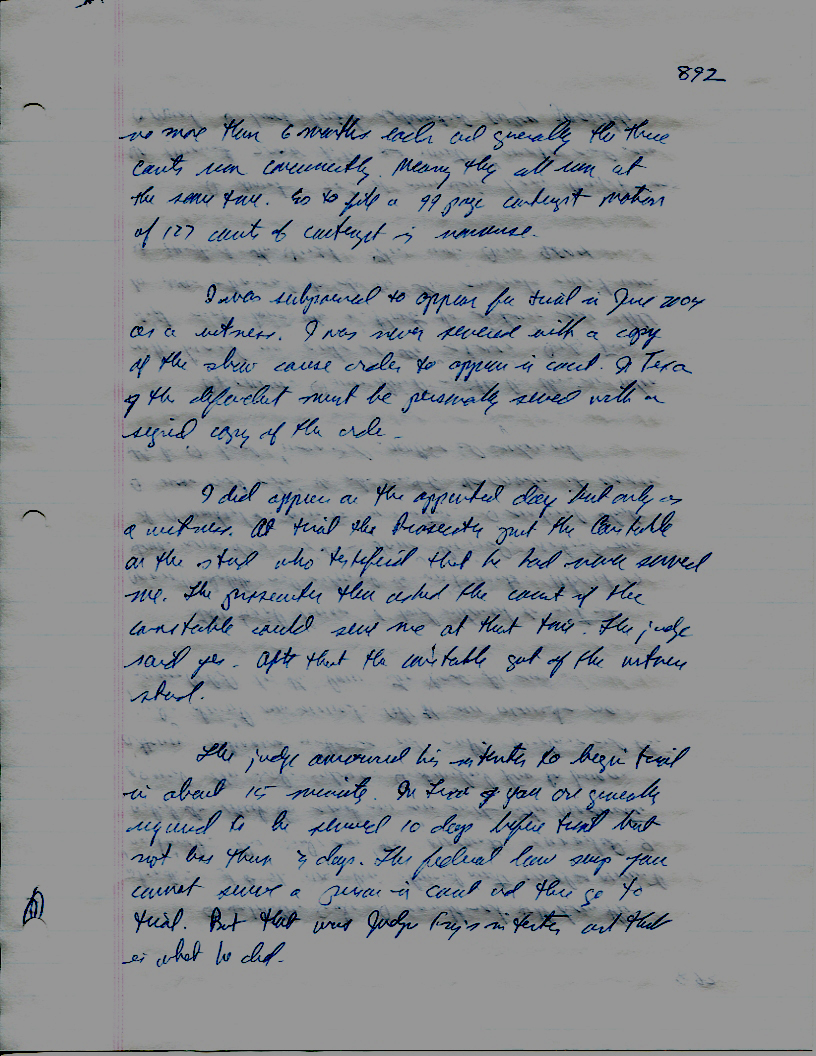 892
no more than 6 months each and generally the three
counts run concurrently. Meaning they all run at
the same time. So to file a 99 page contempt motion
of 127 counts of contempt is nonsense.
I was subpoenaed to appear for trial in June 2004
as a witness. I was never served with a copy
of the show cause order to appear in court. In Texas
the defendant must be personally served with a
signed copy of the order.
I did appear on the appointed day but only as
a witness. At trial the Prosecutor put the Constable
on the stand who testified that he had never served
me. The prosecutor then asked the court if the
constable could serve me at that time. The judge
said yes. After that the constable got off the witness
stand.
The judge announced his intention to begin trial
in about 15 minutes. In Texas you are generally
required to be served 10 days before trial but
not less than 3 days. The federal law says you
cannot serve a person in court and then go to
trial. But that was Judge intention and that
is what he did.